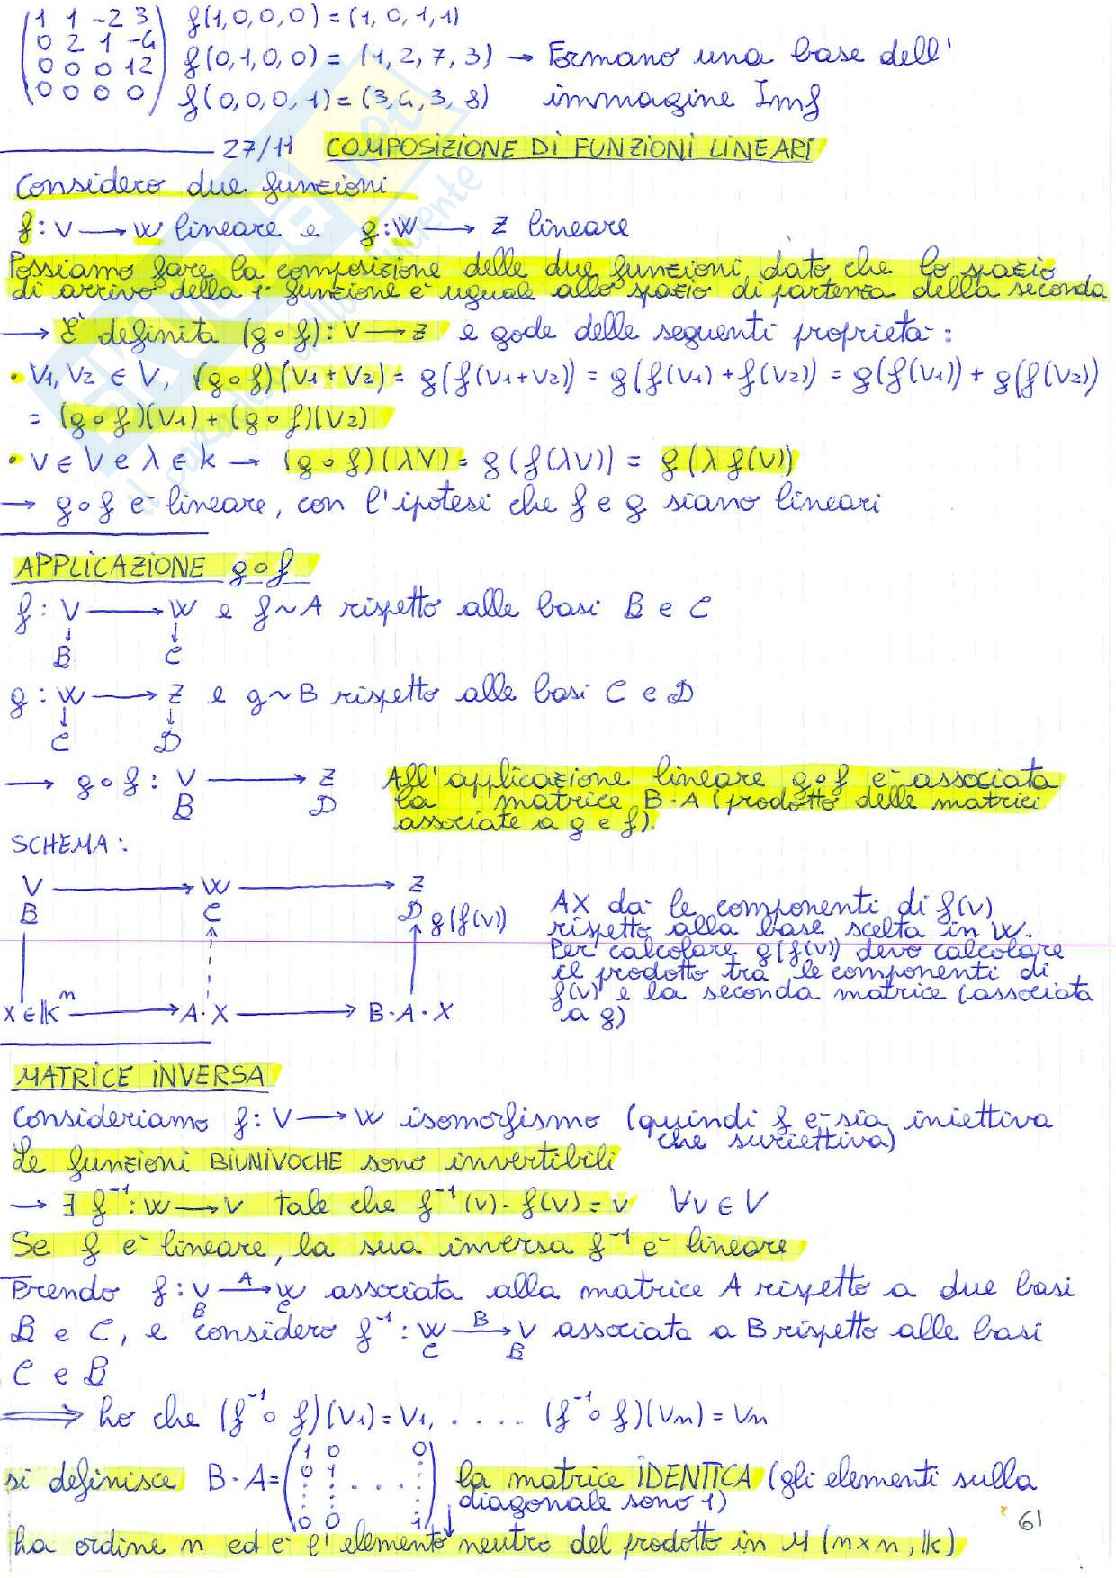 (1 1 -2 3) f(1,0,0,0) = (1, 0, 1, 1)
(0 2 1 -4) f(0,1,0,0) = (1, 2, 7, 3) → Formano una base dell'
(0 0 0 12) f(0,0,0,1) = (3,4,3,8) immagine Imf
(0 0 0 0)
27/11 COMPOSIZIONE DI FUNZIONI LINEARI
Considero due funzioni
f: V → W lineare e g: W → Z lineare
Possiamo fare la composizione delle due funzioni, dato che lo spazio
di arrivo della 1ª funzione è uguale allo spazio di partenza della seconda
→ E' definita (g∘f): V → Z e gode delle seguenti proprietà:
• V1, V2 ∈ V, (g∘f)(V1+V2) = g(f(V1+V2)) = g(f(V1) + f(V2)) = g(f(V1)) + g(f(V2))
= (g∘f)(V1) + (g∘f)(V2)
• V ∈ V e λ ∈ k → (g∘f)(λV) = g(f(λV)) = g(λ f(V))
→ g∘f è lineare, con l'ipotesi che f e g siano lineari
APPLICAZIONE g∘f
f: V → W e f ~ A rispetto alle basi B e C
↓ ↓
B C
g: W → Z e g ~ B rispetto alle basi C e D
↓ ↓
C D
→ g∘f: V → Z All'applicazione lineare g∘f è associata
B D la matrice B·A (prodotto delle matrici
associate a g e f).
SCHEMA:
V → W → Z
B C D g(f(V))
AX dà le componenti di f(V)
rispetto alla base scelta in W.
Per calcolare g(f(V)) devo calcolare
il prodotto tra le componenti di
f(V) e la seconda matrice (associata
a g)
X ∈ 𝕜ⁿ → A·X → B·A·X
MATRICE INVERSA
Consideriamo f: V → W isomorfismo (quindi f è sia iniettiva
che suriettiva)
Le funzioni BIUNIVOCHE sono invertibili
→ ∃ f⁻¹: W → V tale che f⁻¹(V)· f(V) = V ∀V ∈ V
Se f è lineare, la sua inversa f⁻¹ è lineare
Prendo f: V →ᴬ W associata alla matrice A rispetto a due basi
B C
B e C, e considero f⁻¹: W →ᴮ V associata a B rispetto alle basi
C B
C e B
⟹ ho che (f⁻¹∘f)(V1) = V1, . . . . (f⁻¹∘f)(Vn) = Vn
si definisce B·A = (1 0 0 / 0 1 .... / 0 0 1) la matrice IDENTICA (gli elementi sulla
diagonale sono 1)
ha ordine n ed è l'elemento neutro del prodotto in M (n×n, 𝕜)
61